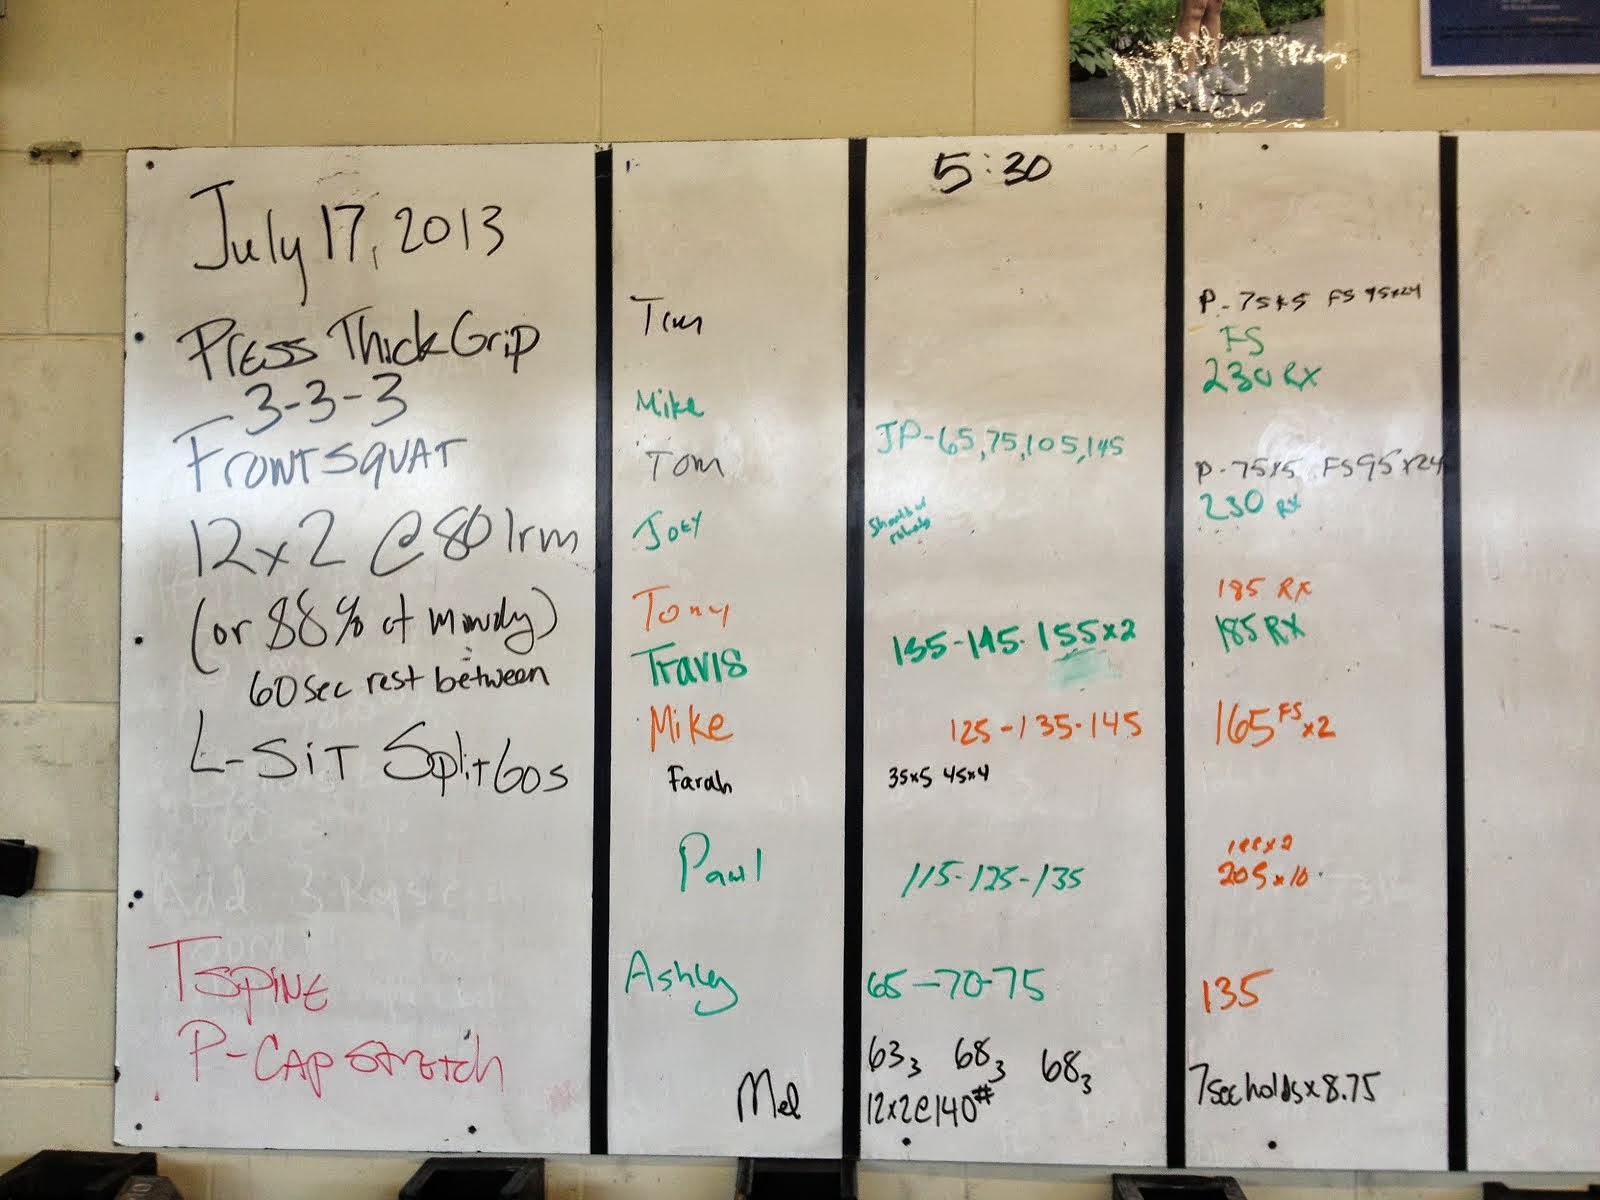 July 17, 2013
Press Thick Grip
3-3-3
Front Squat
12x2 @ 80 1rm
(or 88% of
60 sec rest between
L-Sit Split 60s
Add 3
Tspine
P-Cap Stretch
5:30
Tim
P-75x5 FS 95x24
FS
230 RX
Mike
JP-65,75,105,145
Tom
P-75x5 FS95x24
Joey
230 RX
Tony
185 RX
Travis
135-145-155x2
185 RX
Mike
125-135-145
165 FS x2
Farah
35x5 45x4
Paul
115-125-135
205x10
Ashley
65-70-75
135
Mel
63 3 68 3 68 3
12x2@140#
7sec holds x 8.75